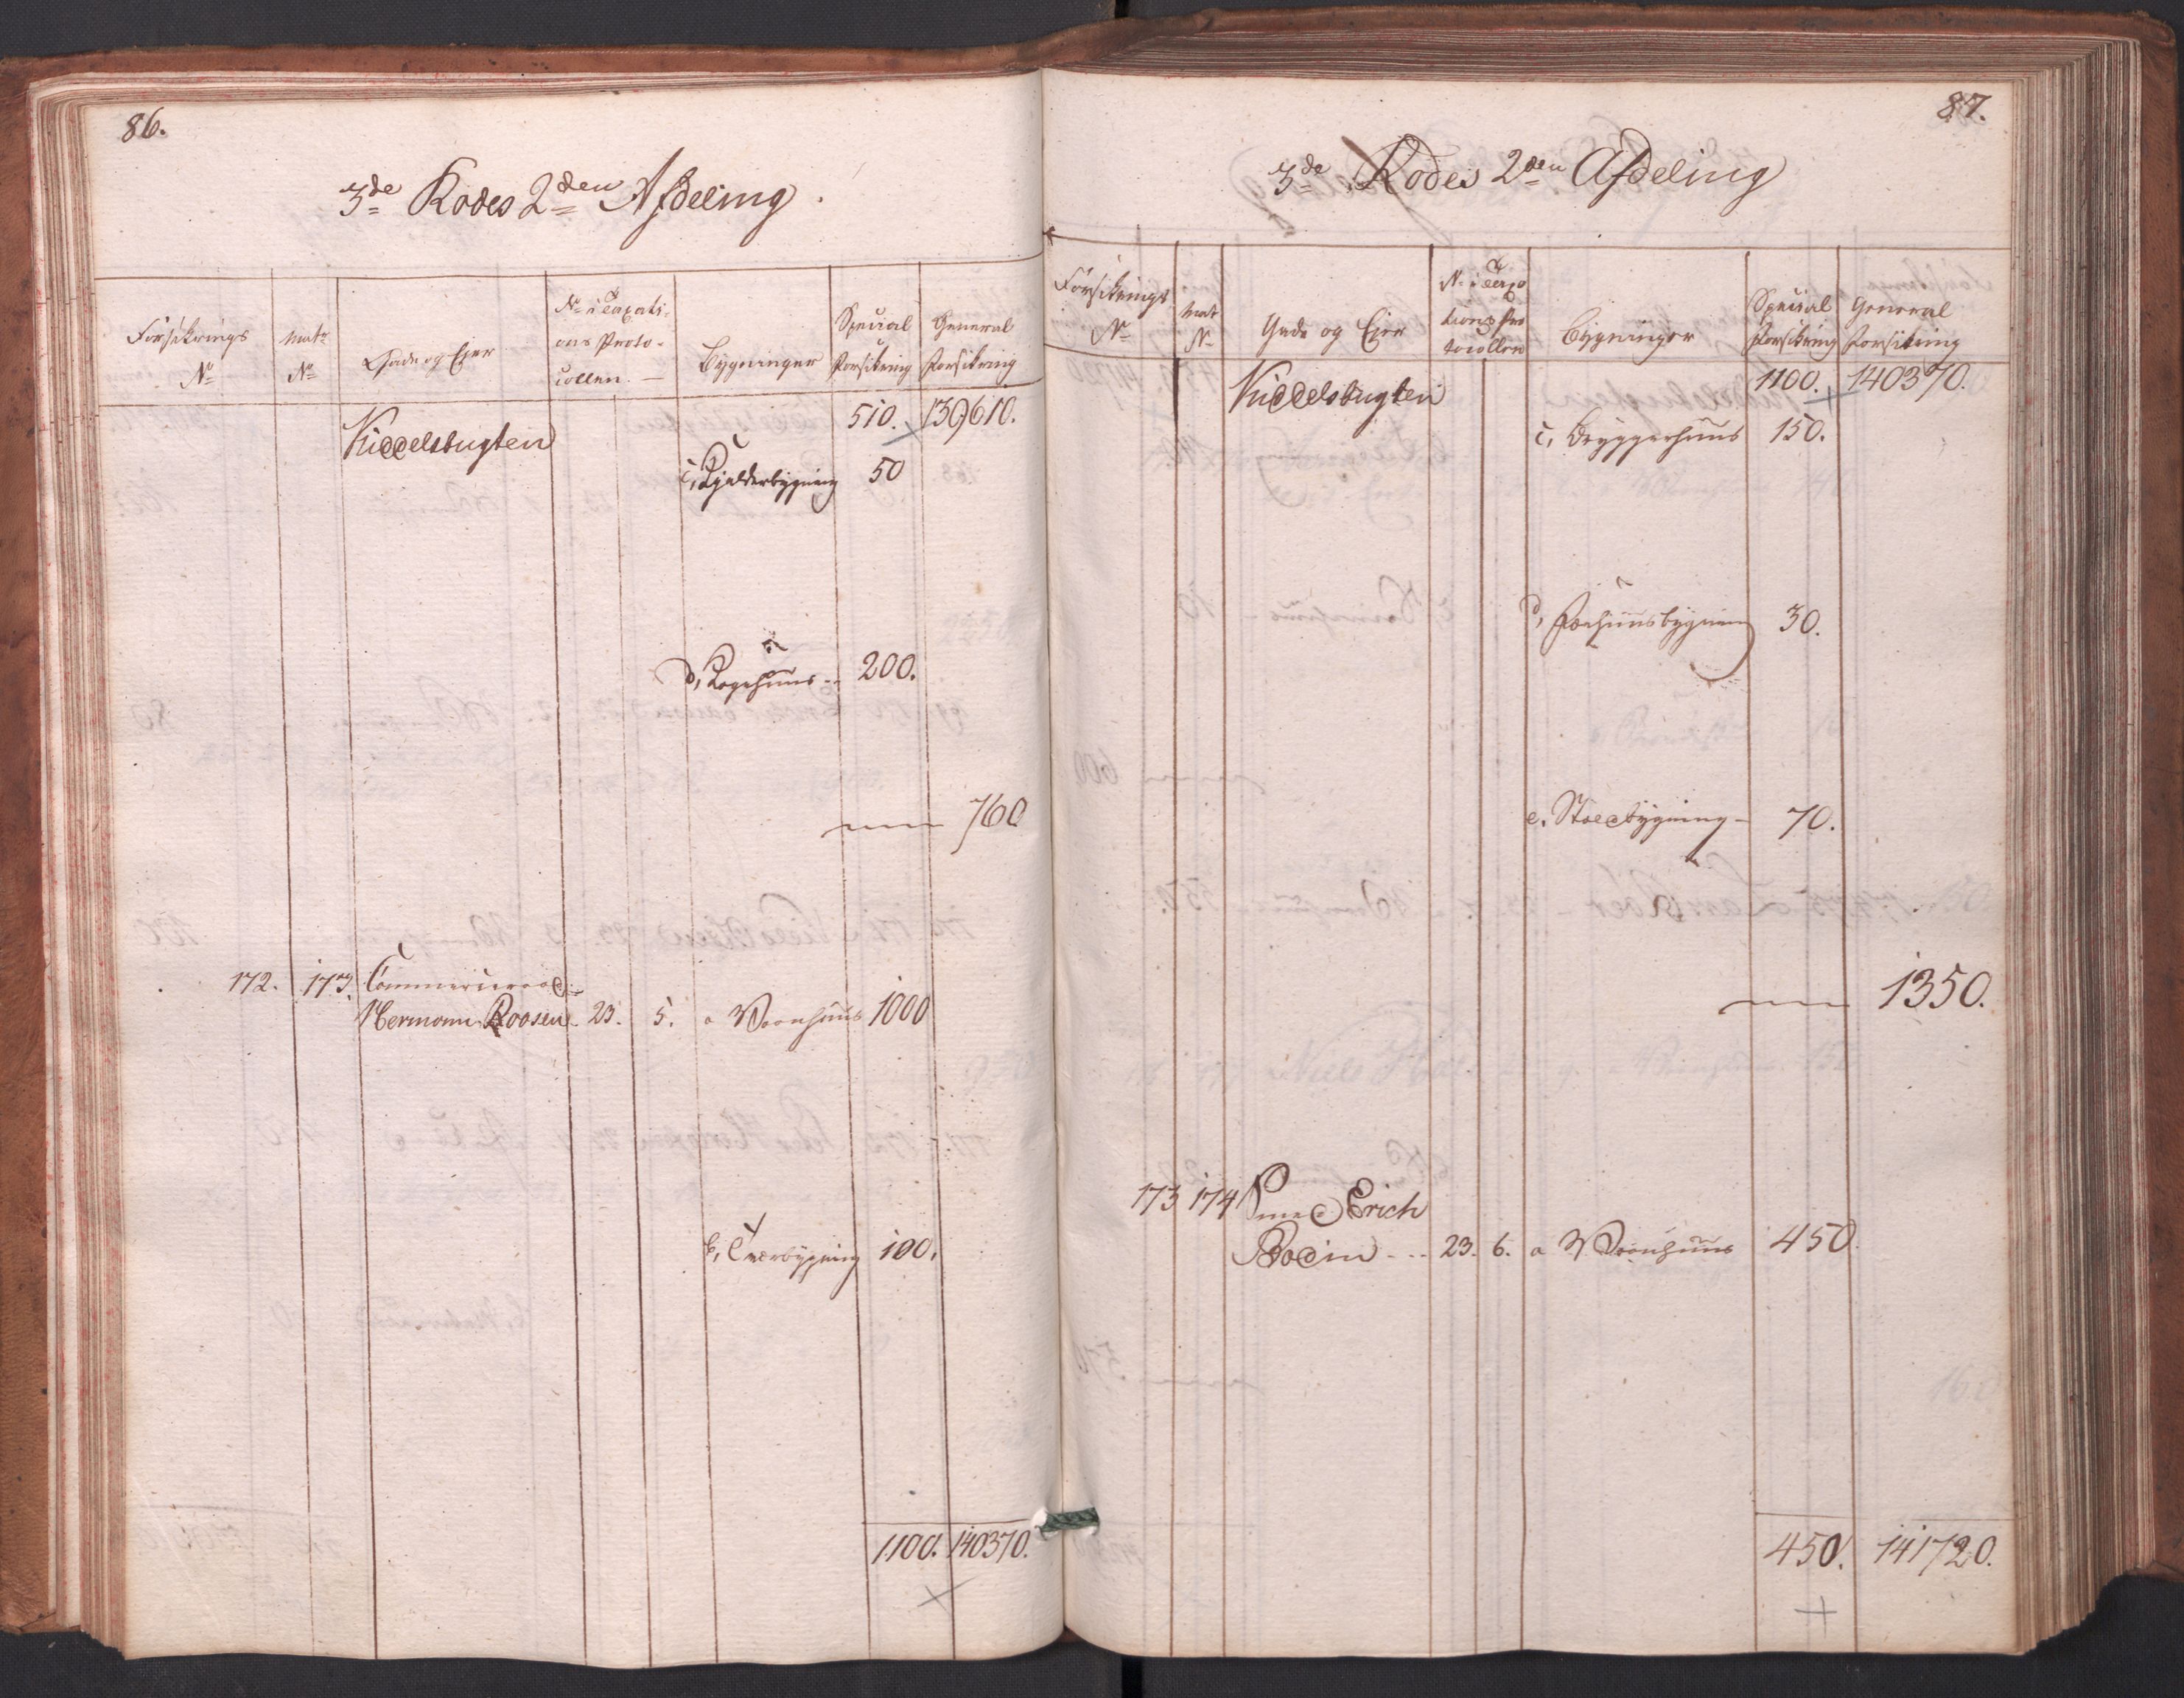 86.
3de Rodes 2den Afdeling.
Forsikrings No
Mats No
Gade og Eier
No i Taxati-
ons Proto-
collen.
Bygninger
Special Forsikring
General Forsikring
Kiddelsbugten 510. 139610.
c, Kjelderbygning 50
d, Kogehuus 200.
760
172. 173. Commerceraad
Hermann Roosen 23. 5. a Vaanhuus 1000
b, Tverbygning 100.
1100. 140370.
87.
3de Rodes 2den Afdeling
Forsikrings No
Mat No
Gade og Eier
No i Taxa
tions Pro
tocollen
Bygninger
Special Forsikring
General Forsikring
Kiddelsbugten 1100. 140370.
c, Bryggerhuus 150.
d, Fæehuusbygning 30.
e. Stoelbygning 70.
1350.
173 174 Smed Erich
Bodin 23. 6. a Vaanhuus 450
450. 141720.